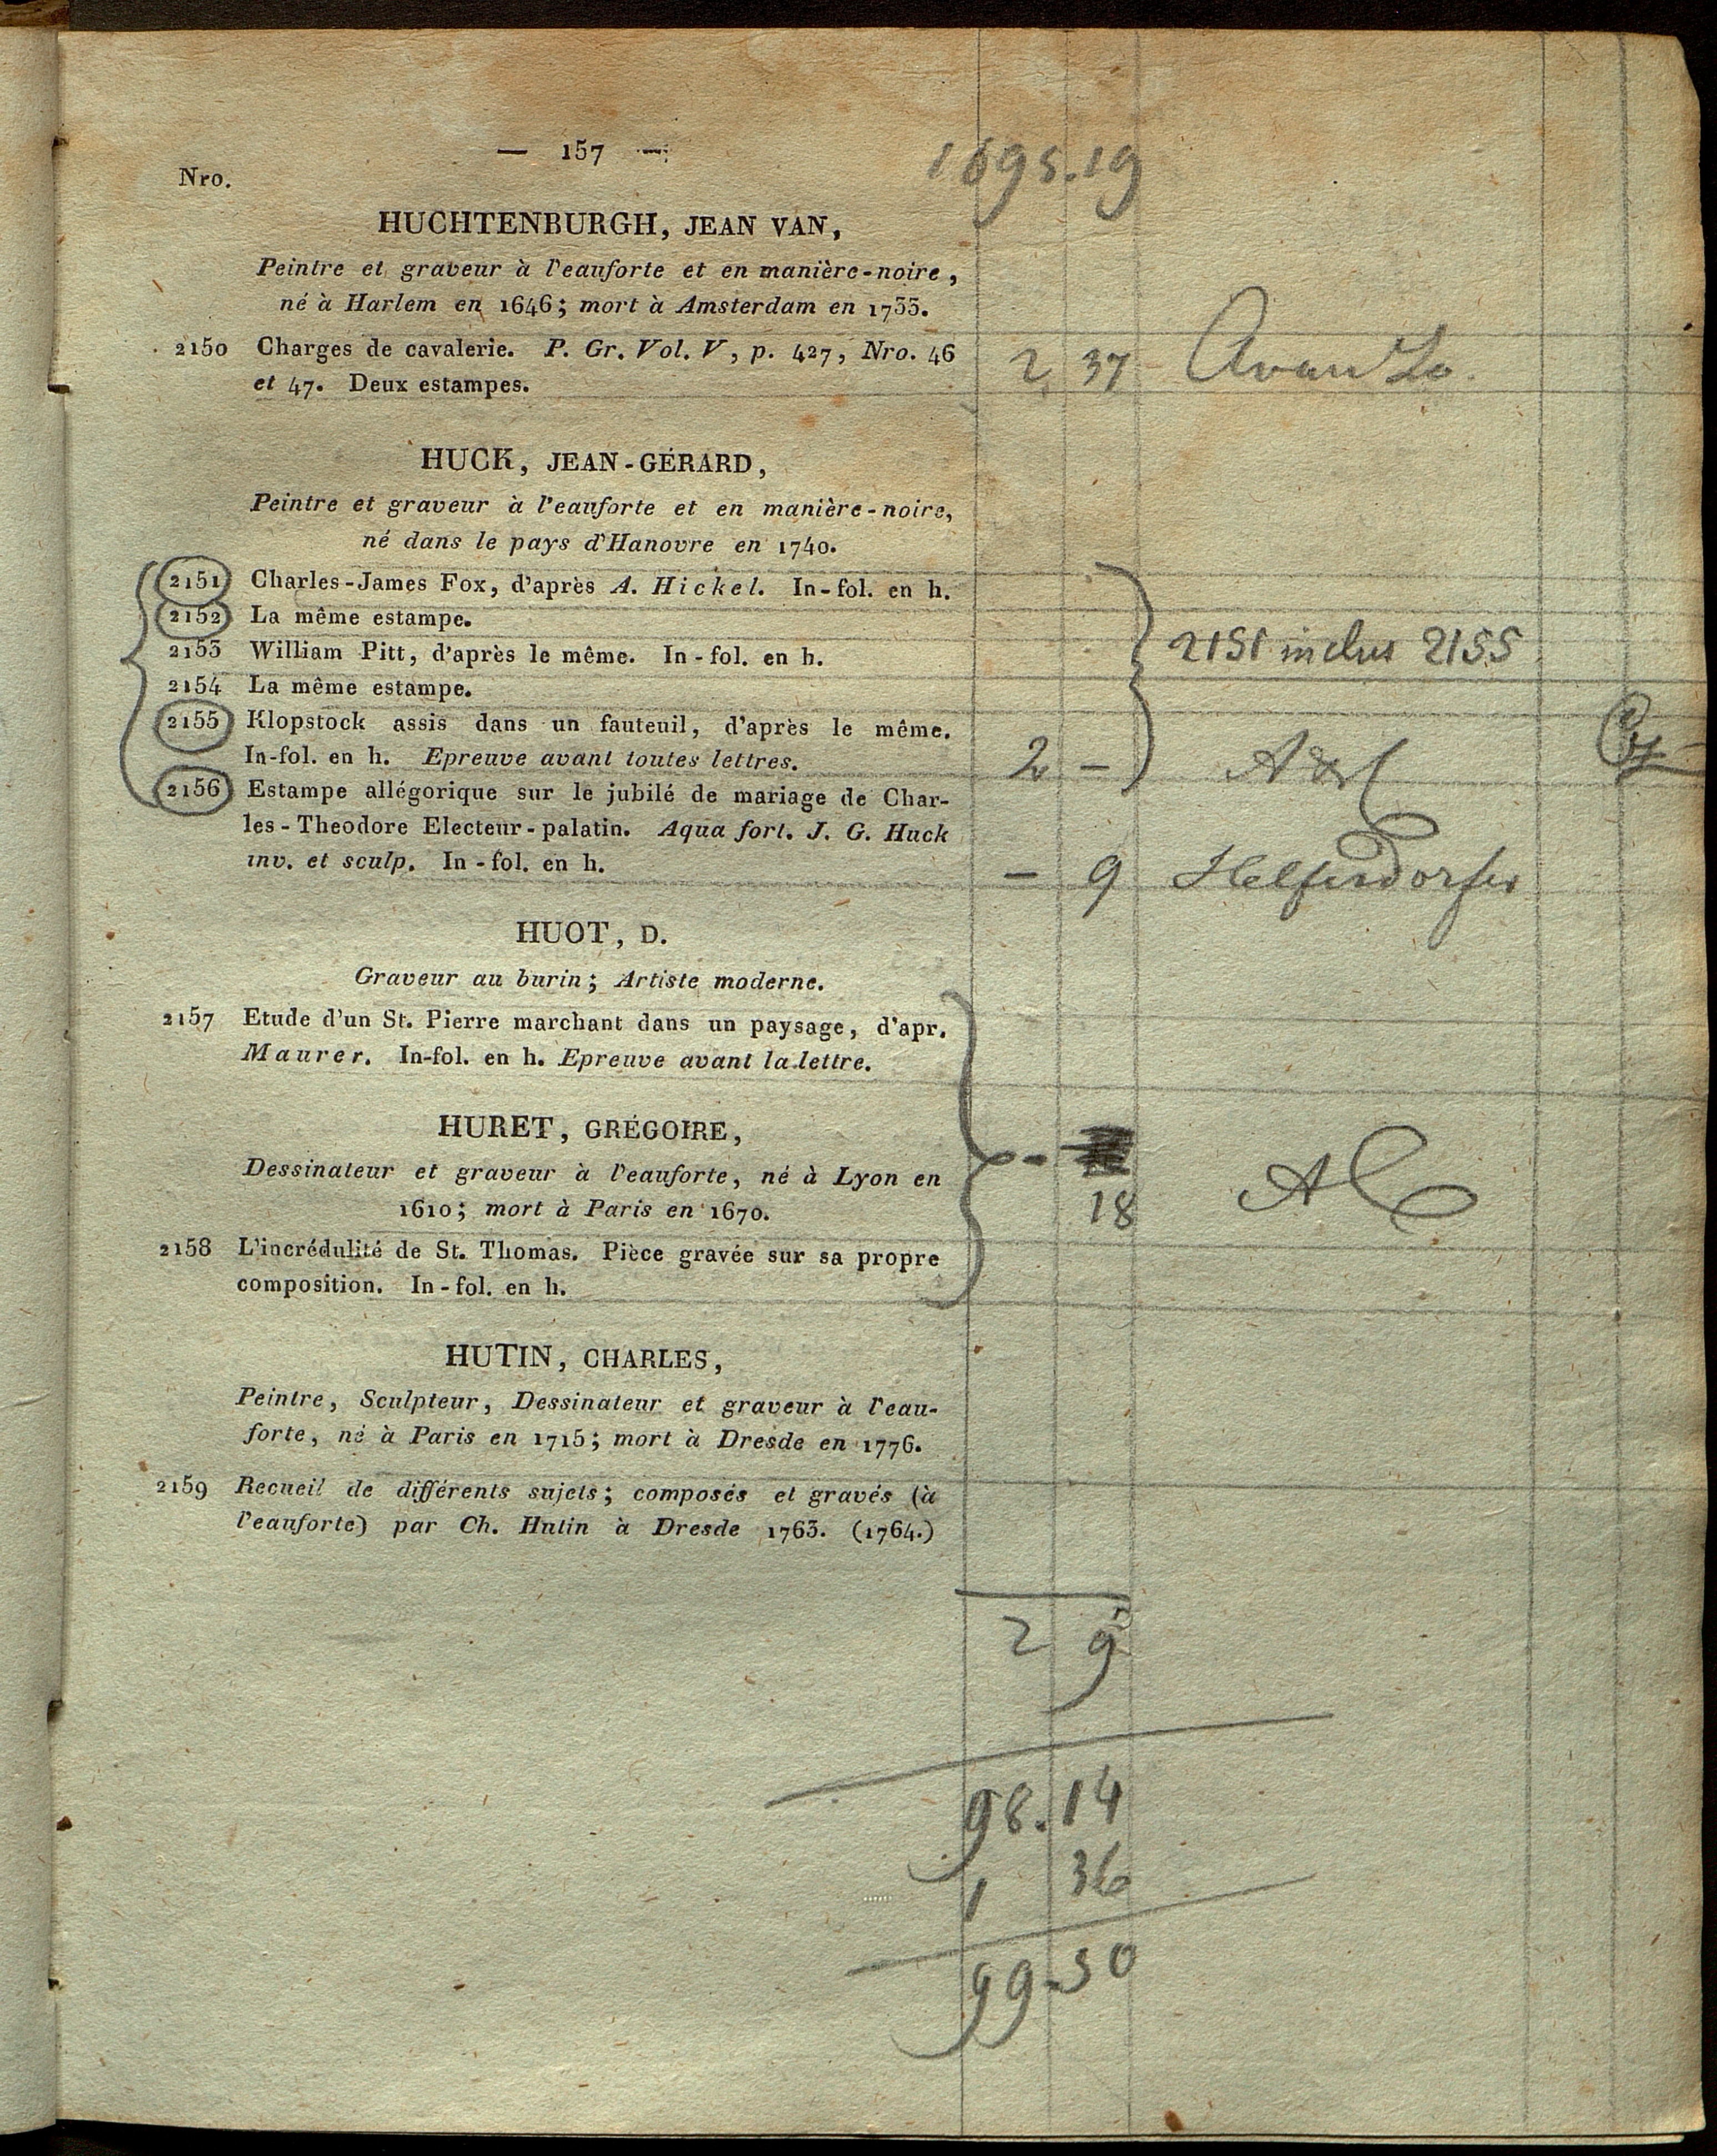 — 157 —
1695.19
Nro.
HUCHTENBURGH, JEAN VAN,
Peintre et graveur à l'eauforte et en manière-noire,
né à Harlem en 1646; mort à Amsterdam en 1733.
2150 Charges de cavalerie. P. Gr. Vol. V, p. 427, Nro. 46
et 47. Deux estampes.
2 37
HUCK, JEAN-GÉRARD,
Peintre et graveur à l'eauforte et en manière-noire,
né dans le pays d'Hanovre en 1740.
2151 Charles-James Fox, d'après A. Hickel. In-fol. en h.
2152 La même estampe.
2153 William Pitt, d'après le même. In-fol. en h.
2151 inclus 2155
2154 La même estampe.
2155 Klopstock assis dans un fauteuil, d'après le même.
In-fol. en h. Epreuve avant toutes lettres.
2 –
2156 Estampe allégorique sur le jubilé de mariage de Char-
les-Theodore Electeur-palatin. Aqua fort. J. G. Huck
inv. et sculp. In-fol. en h.
– 9 Helfersdorfer
HUOT, D.
Graveur au burin; Artiste moderne.
2157 Etude d'un St. Pierre marchant dans un paysage, d'apr.
Maurer. In-fol. en h. Epreuve avant la lettre.
HURET, GRÉGOIRE,
Dessinateur et graveur à l'eauforte, né à Lyon en
1610; mort à Paris en 1670.
18
2158 L'incrédulité de St. Thomas. Pièce gravée sur sa propre
composition. In-fol. en h.
HUTIN, CHARLES,
Peintre, Sculpteur, Dessinateur et graveur à l'eau-
forte, né à Paris en 1715; mort à Dresde en 1776.
2159 Recueil de différents sujets; composés et gravés (à
l'eauforte) par Ch. Hutin à Dresde 1763. (1764.)
2 9
98.14
1 36
99-50